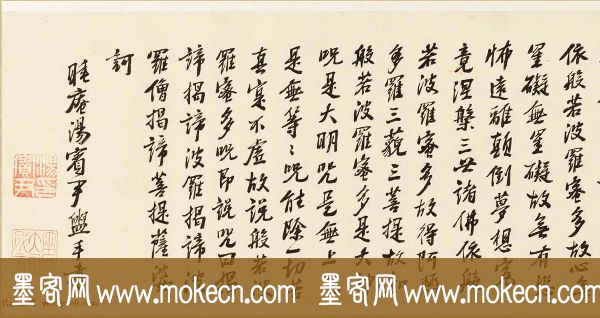 依般若波羅蜜多故心
罣礙無罣礙故無有恐
怖遠離顛倒夢想究
竟涅槃三世諸佛依般
若波羅蜜多故得阿耨
多羅三藐三菩提故
般若波羅蜜多是大
呪是大明呪是無上
是無等〻呪能除一切苦
真寔不虛故說般若波
羅蜜多呪即說呪曰揭
諦揭諦波羅揭諦波
羅僧揭諦菩提薩婆
訶
睡庵湯賓尹盥手
墨客网 www.mokecn.com 墨客网 www.mokecn.com